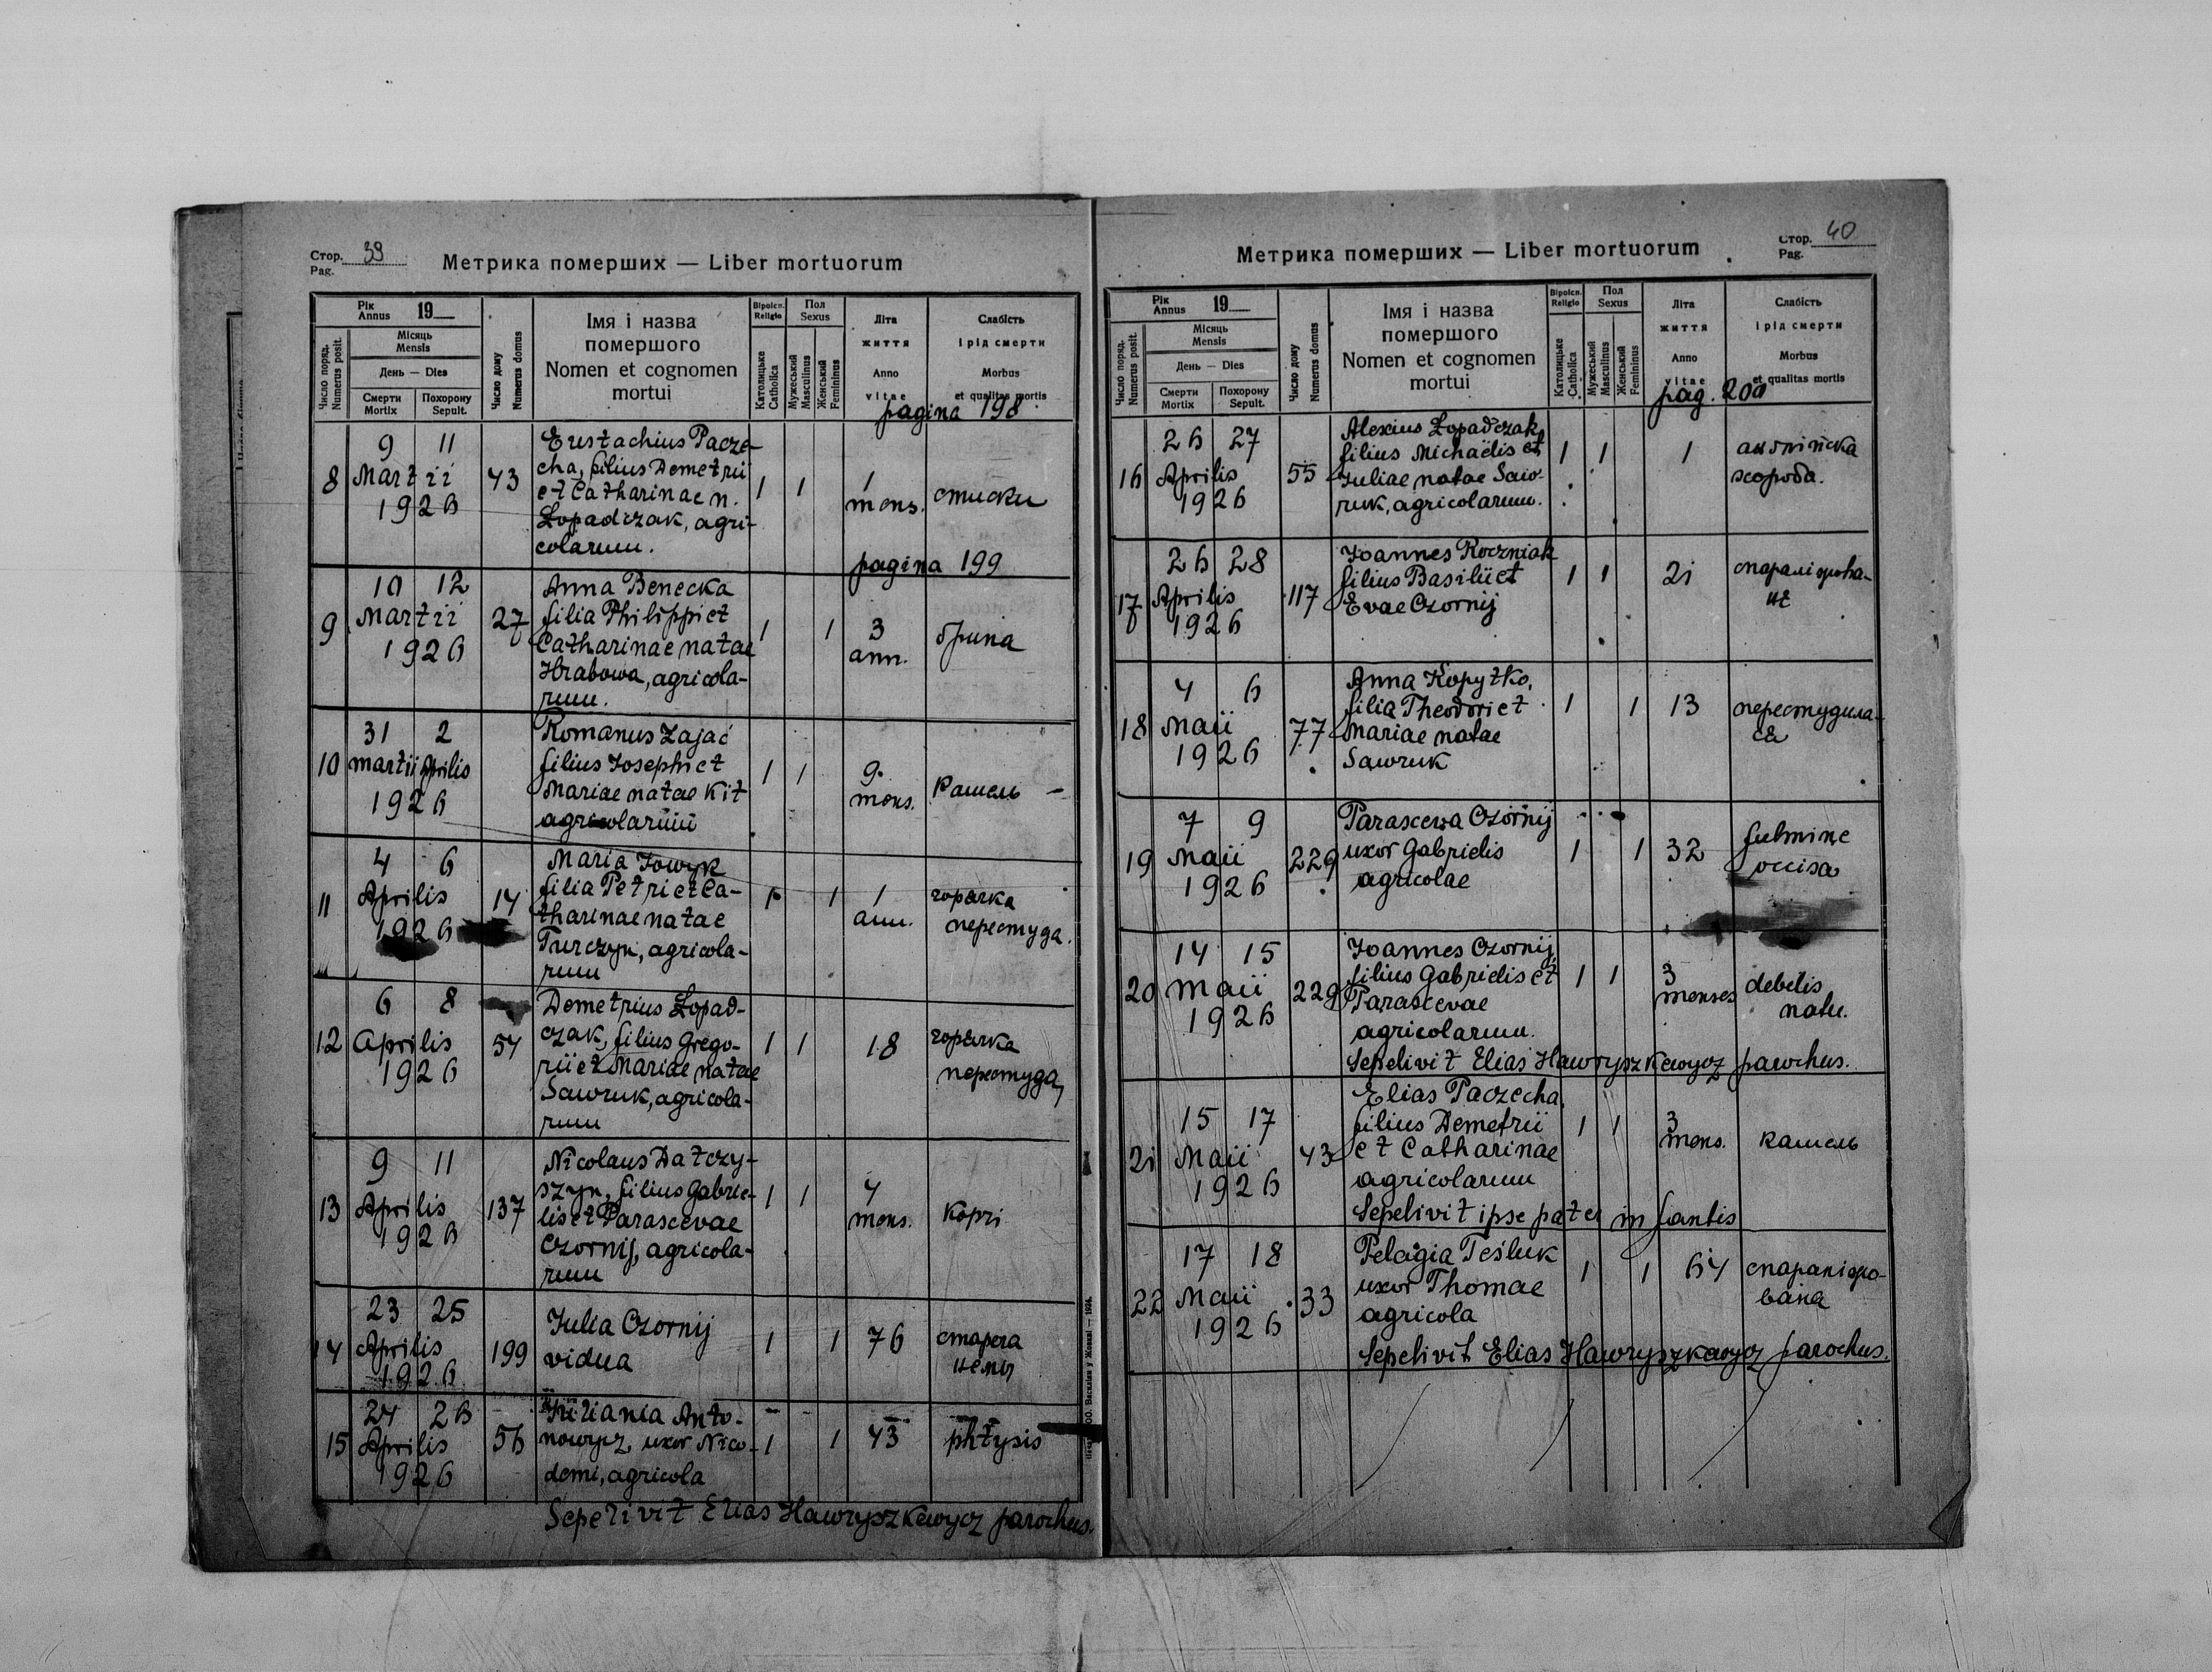 Стор. 39
Pag.
Метрика померших — Liber mortuorum
Рік
Annus 19
Число поряд.
Numerus posit.
Місяць
Mensis
День — Dies
Смерти
Mortix
Похорону
Sepult.
Число дому
Numerus domus
Імя і назва
помершого
Nomen et cognomen
mortui
Віроісп.
Religio
Католицьке
Catholica
Пол
Sexus
Мужеський
Masculinus
Женський
Femininus
Літа
життя
Anno
vitae
Слабість
і рід смерти
Morbus
et qualitas mortis
pagina 198
8
9 11
Martii
1926
43
Eustachius Pacze-
cha, filius Demetrii
et Catharinae n.
Łopadczak, agri-
colarum.
1 1
1
mens.
стиски
pagina 199
9
10 12
Martii
1926
27
Anna Benecka
filia Philippi et
Catharinae natae
Hrabowa, agricola-
rum.
1 1
3
ann.
10
31 2
martii Aprilis
1926
Romanus Zając
filius Josephi et
Mariae natae Kit
agricolarum
1 1
9
mens.
Кашель
11
4 6
Aprilis
1926
14
Maria Jowyk
filia Petri et Ca-
tharinae natae
Turczyn, agricola-
rum
1 1
1
ann.
горячка
перестуда.
12
6 8
Aprilis
1926
54
Demetrius Łopad-
czak, filius Grego-
rii et Mariae natae
Sawruk, agricola-
rum
1 1
18
горячка
перестуда
13
9 11
Aprilis
1926
137
Nicolaus Datczy-
szyn, filius Gabrie-
lis et Parascevae
Czornij, agricola-
rum
1 1
4
mens.
Корі
14
23 25
Aprilis
1926
199
Julia Czornij
vidua
1 1
76
стареча
неміч
15
24 26
Aprilis
1926
56
Juliania Anto-
nowycz, uxor Nico-
demi, agricola
1 1
43
phtysis
Sepelivit Elias Hawryszkewycz parochus.
Стор. 40
Pag.
Метрика померших — Liber mortuorum
Рік
Annus 19
Число поряд.
Numerus posit.
Місяць
Mensis
День — Dies
Смерти
Mortix
Похорону
Sepult.
Число дому
Numerus domus
Імя і назва
помершого
Nomen et cognomen
mortui
Віроісп.
Religio
Католицьке
Catholica
Пол
Sexus
Мужеський
Masculinus
Женський
Femininus
Літа
життя
Anno
vitae
Слабість
і рід смерти
Morbus
et qualitas mortis
pag. 200
16
26 27
Aprilis
1926
55
Alexius Łopadczak,
filius Michaelis et
Juliae natae Saw-
ruk, agricolarum.
1 1
1
англійска
хороба.
17
26 28
Aprilis
1926
117
Joannes Roczniak
filius Basilii et
Evae Czornij
1 1
21
спараліжова-
18
4 6
Maii
1926
77
Anna Kopytko,
filia Theodori et
Mariae natae
Sawruk
1 1
13
перестудила-
ся
19
7 9
Maii
1926
229
Parascewa Czornij
uxor Gabrielis
agricolae
1 1
32
fulmine
occisa
20
14 15
maii
1926
229
Joannes Czornij,
filius Gabrielis et
Parascevae
agricolarum.
1 1
3
menses
debilis
natu.
Sepelivit Elias Hawryszkewycz parochus.
21
15 17
Maii
1926
43
Elias Paczecha,
filius Demetrii
et Catharinae
agricolarum
1 1
3
mens.
кашель
Sepelivit ipse pater infantis
22
17 18
Maii
1926
33
Pelagia Teśluk
uxor Thomae
agricola
1 1
64
спараліжо-
вана
Sepelivit Elias Hawryszkewycz parochus.